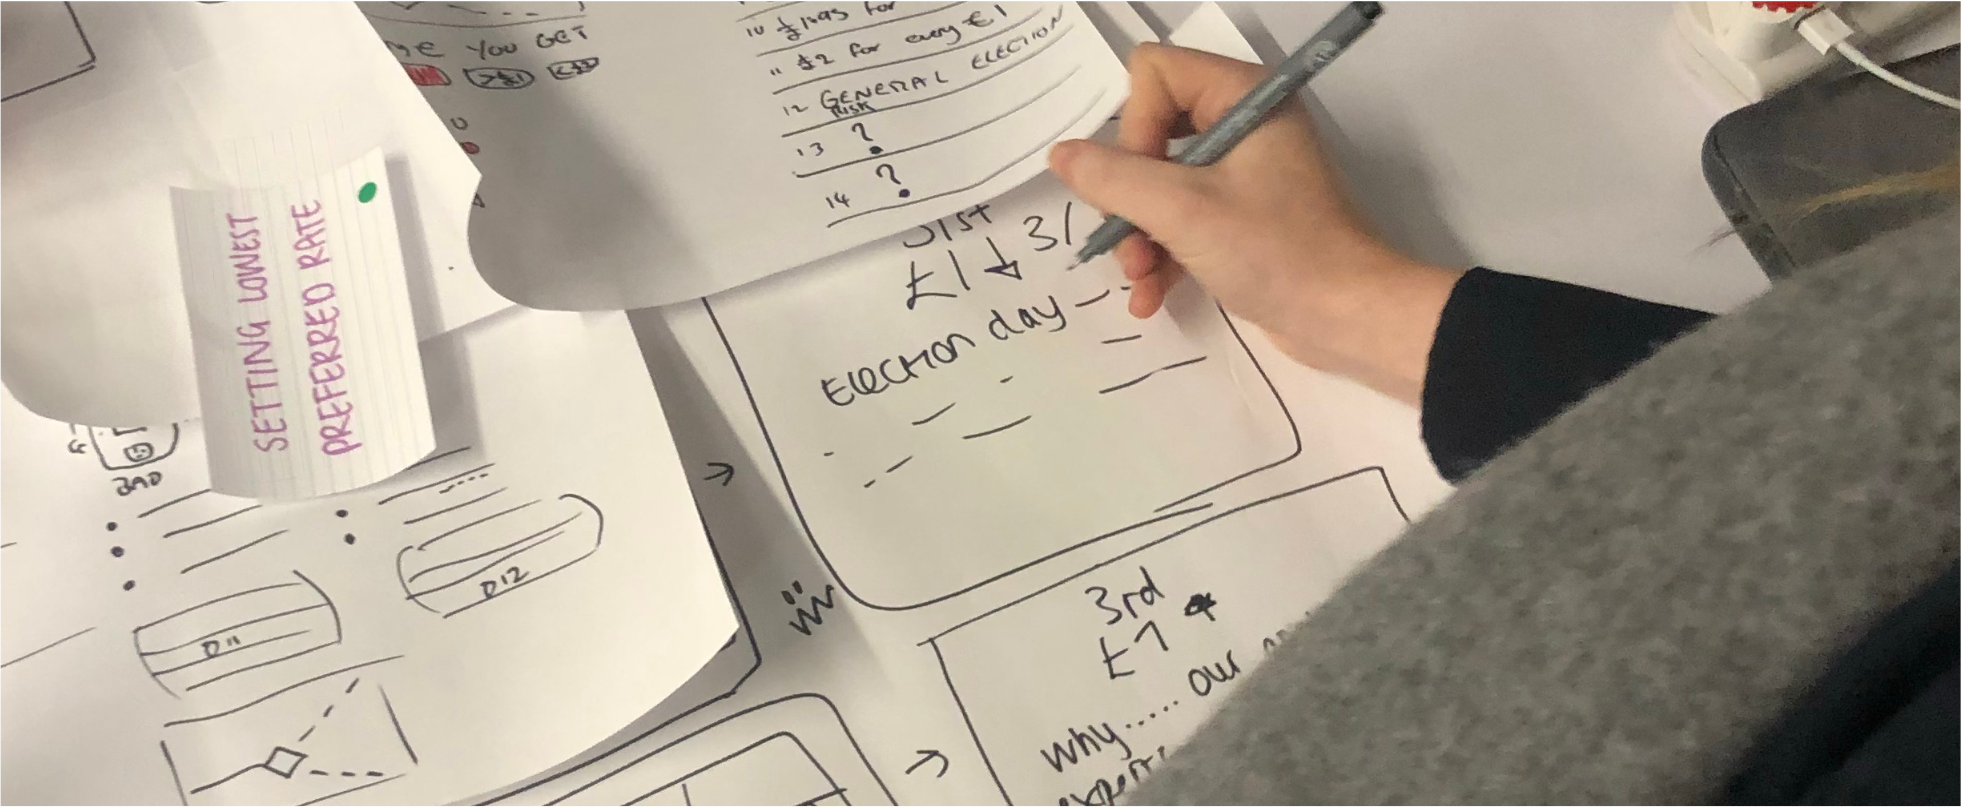 YOU GET
10
11 £2 for every £1
12 GENERAL ELECTION
RISK
13 ?
14 ?
SETTING LOWEST
PREFERRED RATE
31st
£1 ↓ 3/
Election day
BAD
D11
D12
3rd
£1
why..... our